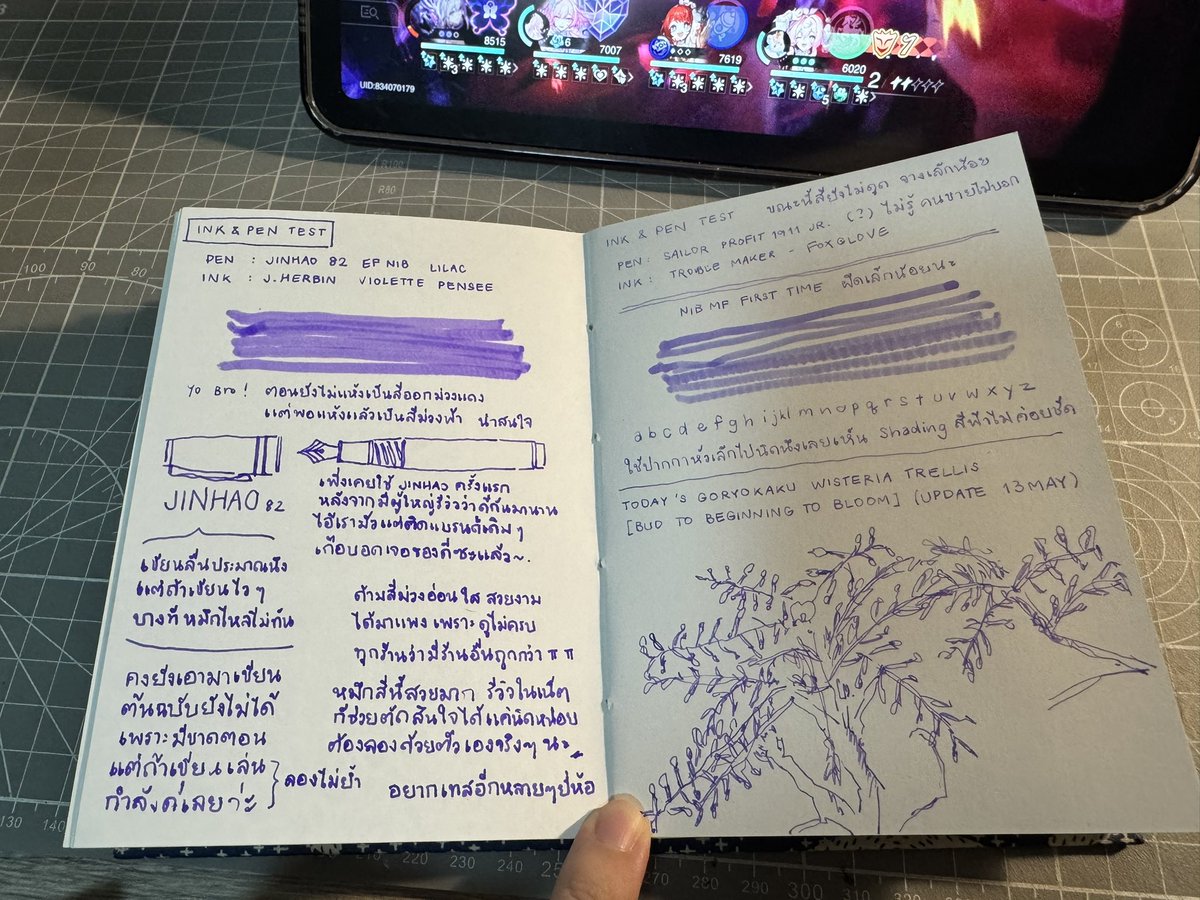 8515
6
7007
7619
6020
2
3
3
5
UID:834070179
R100
R80
INK & PEN TEST
PEN : JINHAO 82 EF NIB LILAC
INK : J.HERBIN VIOLETTE PENSEE
Yo Bro! ตอนยังไม่แห้งเป็นสีออกม่วงแดง
แต่พอแห้งแล้วเป็นสีม่วงฟ้า น่าสนใจ
JINHAO 82
เขียนลื่นประมาณนึง
แต่ถ้าเขียนไวๆ
บางทีหมึกไหลไม่ทัน
คงยังเอามาเขียน
ต้นฉบับยังไม่ได้
เพราะมีขาดตอน
แต่ถ้าเขียนเล่น
กำลังดีเลยว่ะ
ลองไม่ย้ำ
เพิ่งเคยใช้ JINHAO ครั้งแรก
หลังจากมีผู้ใหญ่รีวิวว่าดีกันมานาน
ไอ้เรามัวแต่ติดแบรนด์เดิมๆ
เกือบอดเจอของดีซะแล้ว~.
ด้ามสีม่วงอ่อนใส สวยงาม
ได้มาแพง เพราะดูไม่ครบ
ทุกร้านว่ามีร้านอื่นถูกกว่า TT TT
หมึกสีนี้สวยมาก รีวิวในเน็ต
ก็ช่วยตัดสินใจได้แค่นิดหน่อย
ต้องลองด้วยตัวเองจริงๆ นะ
อยากเทสอีกหลายๆยี่ห้อ
INK & PEN TEST ขณะนี้สียังไม่ดูด จางเล็กน้อย
PEN : SAILOR PROFIT 1911 JR. (?) ไม่รู้ คนขายไม่บอก
INK : TROUBLE MAKER - FOXGLOVE
NIB MF FIRST TIME ฝืดเล็กน้อยนะ
a b c d e f g h i j k l m n o p q r s t u v w x y z
ใช้ปากกาหัวเล็กไปนิดนึงเลยเห็น Shading สีฟ้าไม่ค่อยชัด
TODAY'S GORYOKAKU WISTERIA TRELLIS
[BUD TO BEGINNING TO BLOOM] (UPDATE 13 MAY)
100
90
80
70
130
140
210
220
230
240
250
260
270
280
290
300
310
320